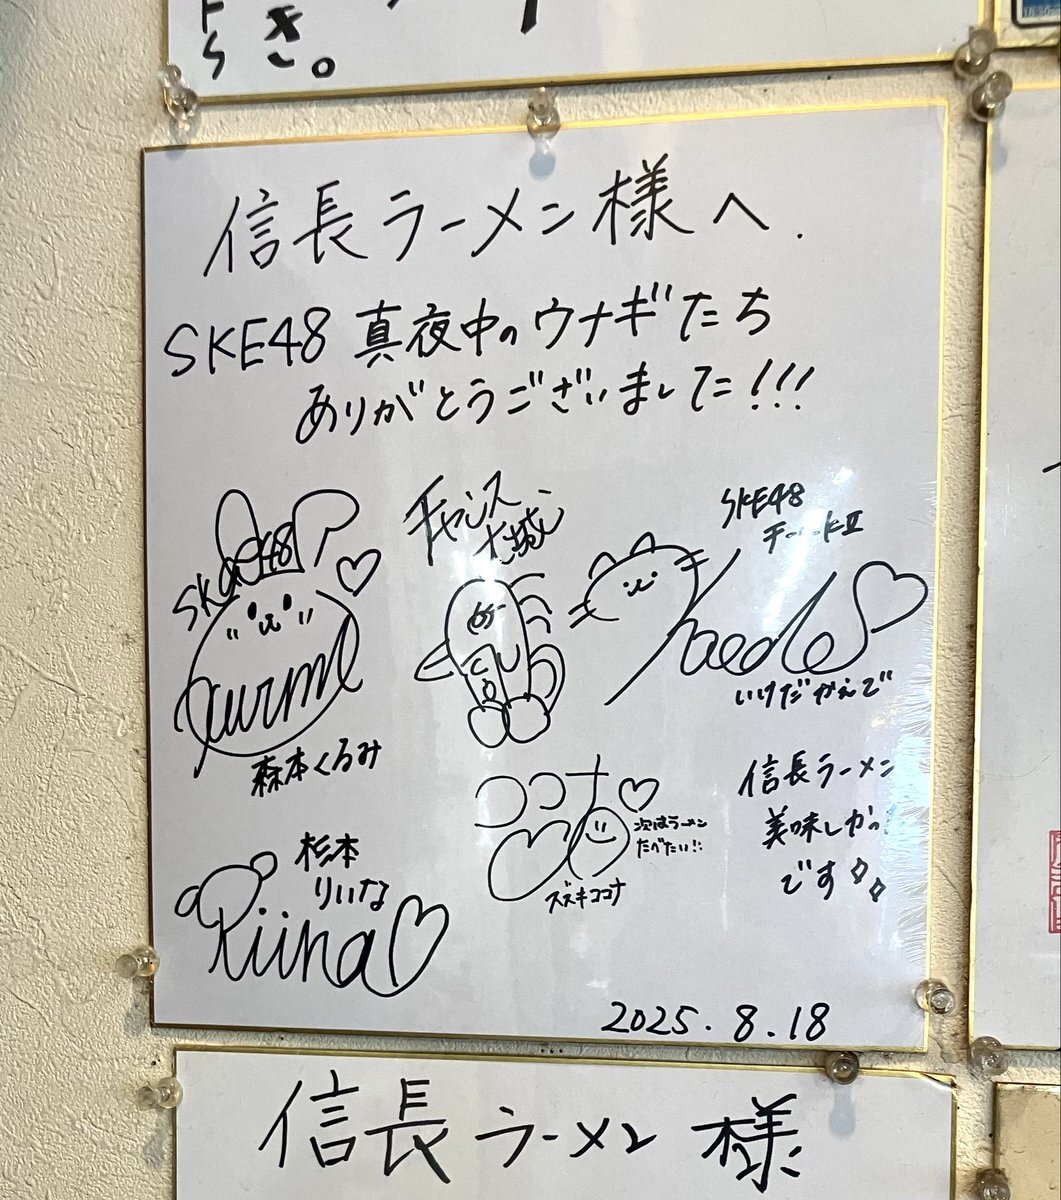 き。
信長ラーメン様へ.
SKE48 真夜中のウナギたち
ありがとうございました!!!
SKE48
kurumi
森本くるみ
チャンス
大城
SKE48
チームKⅡ
kaede
いけだかえで
ココナ
次はラーメン
たべたい!!
スズキココナ
信長ラーメン
美味しかっ
です
杉本
りいな
Riina
2025.8.18
信長ラーメン様